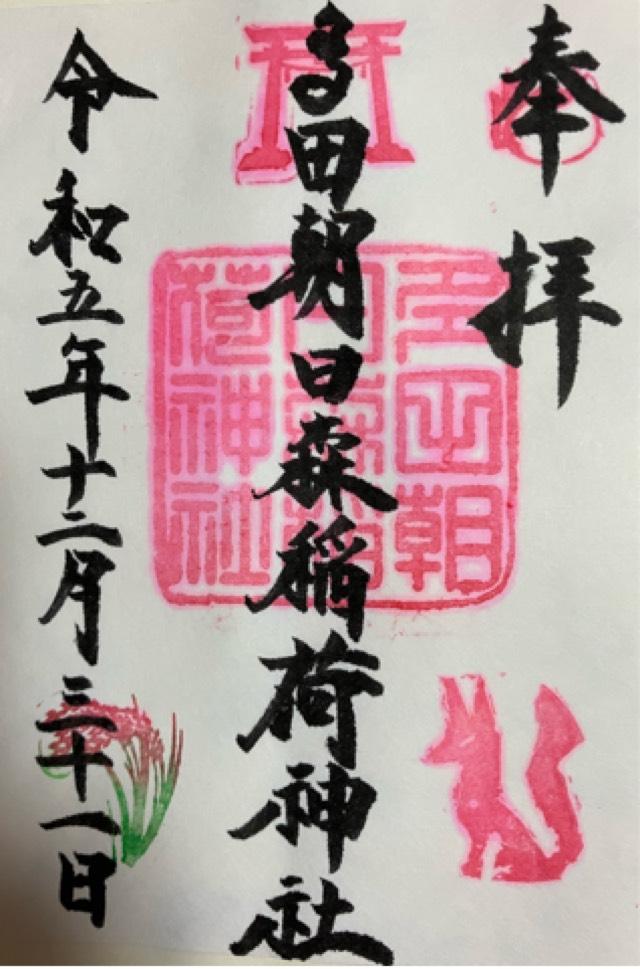 奉拝
多田朝日森稲荷神社
多田朝
日森稲
荷神社
令和五年十二月三十一日